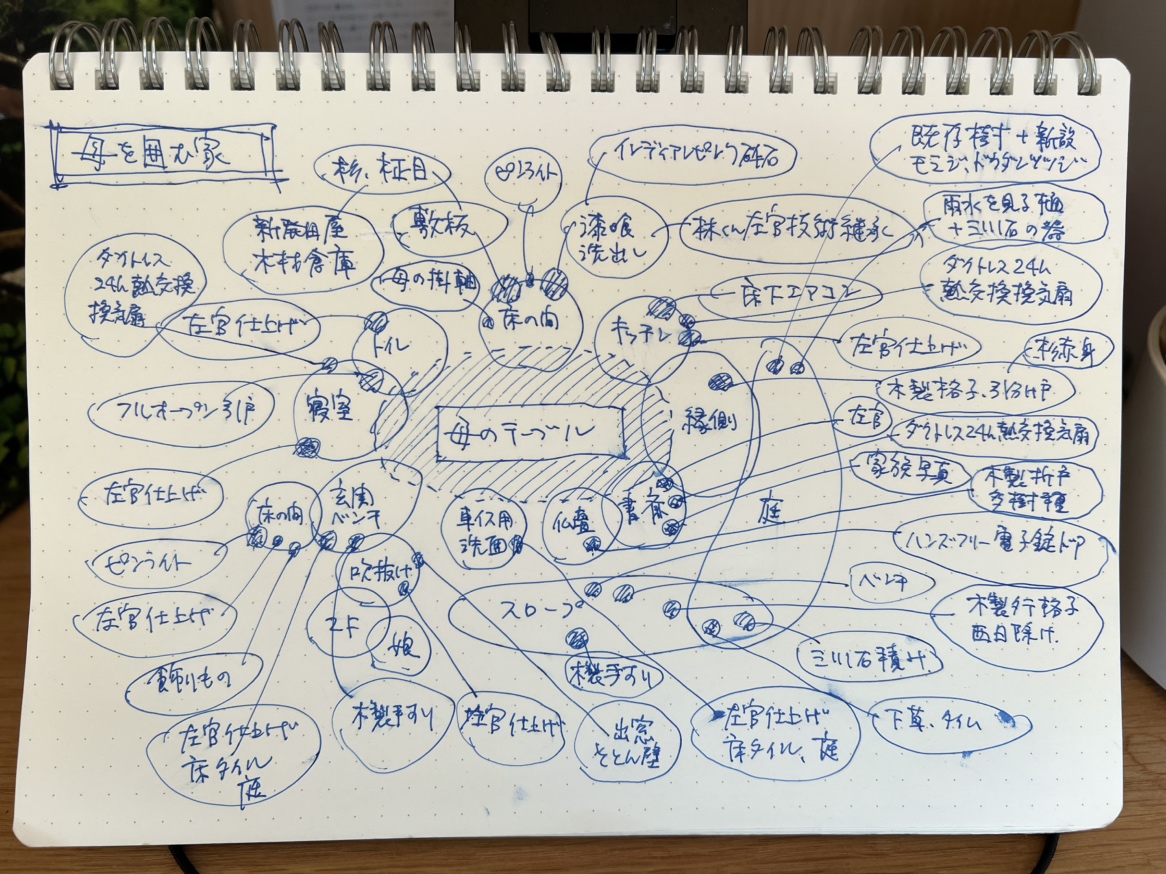 母を囲む家
杉、柾目
ピンライト
既存樹+新設
モミジ、ドウダンツツジ
新発田屋
木材倉庫
敷板
漆喰
洗出し
株くん左官技術継承
雨水を見る樋
ダクトレス
24h熱交換
換気扇
母の掛軸
床の間
キッチン
床下エアコン
ダクトレス24h
熱交換換気扇
左官仕上げ
トイレ
左官仕上げ
杉赤身
フルオープン引戸
寝室
母のテーブル
縁側
木製格子、引分け戸
左官
ダクトレス24h熱交換換気扇
家族写真
木製折戸
多樹種
左官仕上げ
床の間
玄関
ベンチ
車イス用
洗面
仏壇
書斎
庭
ハンズフリー電子錠ドア
ピンライト
吹抜け
ベンチ
左官仕上げ
2F
娘
スロープ
西日除け
飾りもの
木製手すり
木製手すり
左官仕上げ
左官仕上げ
床タイル
庭
出窓
そとん壁
左官仕上げ
床タイル、庭
下草、タイム